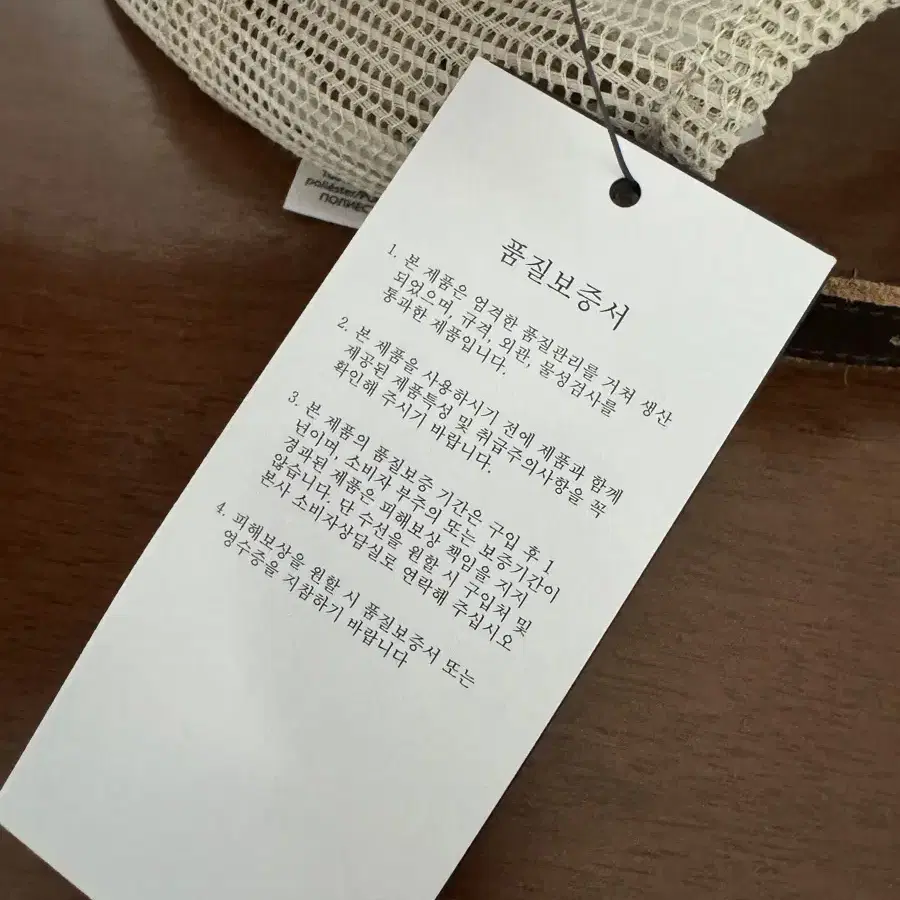 poliéster/Pu
품질보증서
1. 본 제품은 엄격한 품질관리를 거쳐 생산
되었으며, 규격, 외관, 물성검사를
통과한 제품입니다.
2. 본 제품을 사용하시기 전에 제품과 함께
제공된 제품특성 및 취급주의사항을 꼭
확인해 주시기 바랍니다.
3. 본 제품의 품질보증 기간은 구입 후 1
년이며, 소비자 부주의 또는 보증기간이
경과된 제품은 피해보상 책임을 지지
않습니다. 단 수선을 원할 시 구입처 및
본사 소비자상담실로 연락해 주십시오
4. 피해보상을 원할 시 품질보증서 또는
영수증을 지참하기 바랍니다